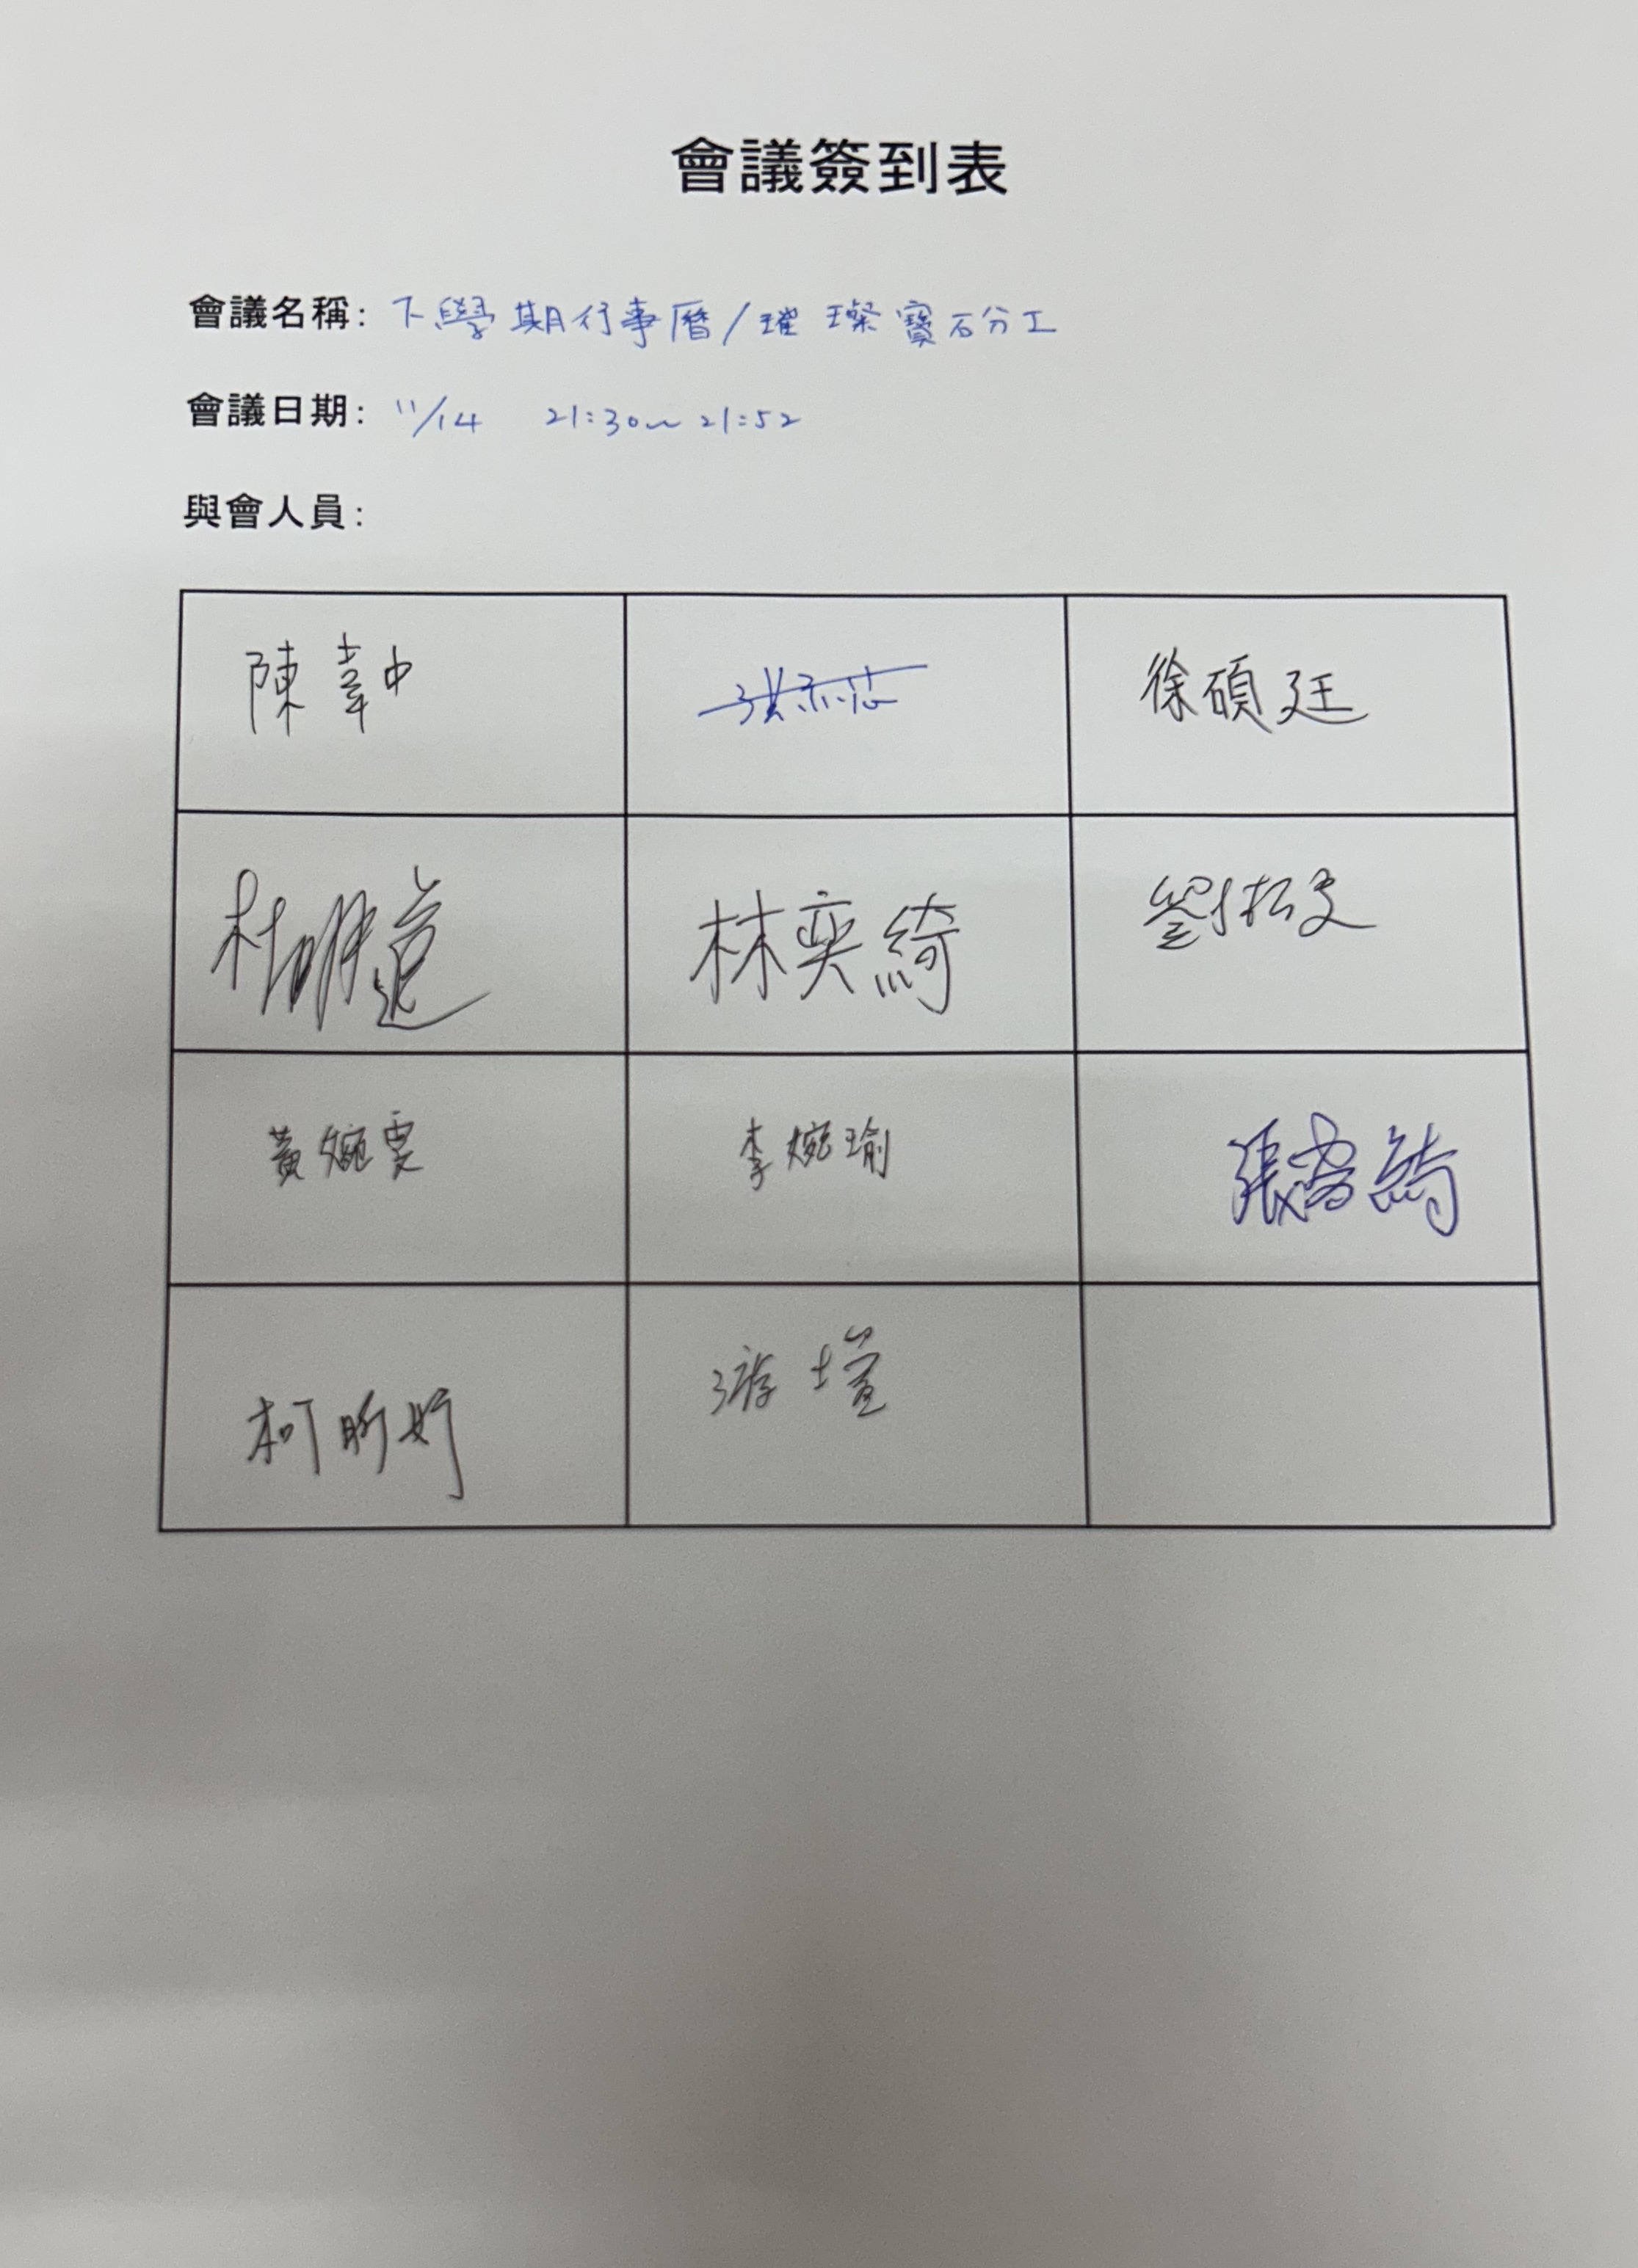 會議簽到表
會議名稱: 下學期行事曆/璀璨寶石分工
會議日期: 11/14 21:30~21:52
與會人員:
陳韋中 洪于芯 徐碩廷
杜明道 林奕綺 劉松文
黃婉雯 李婉瑜 張喬綺
柯昕妤 游塏